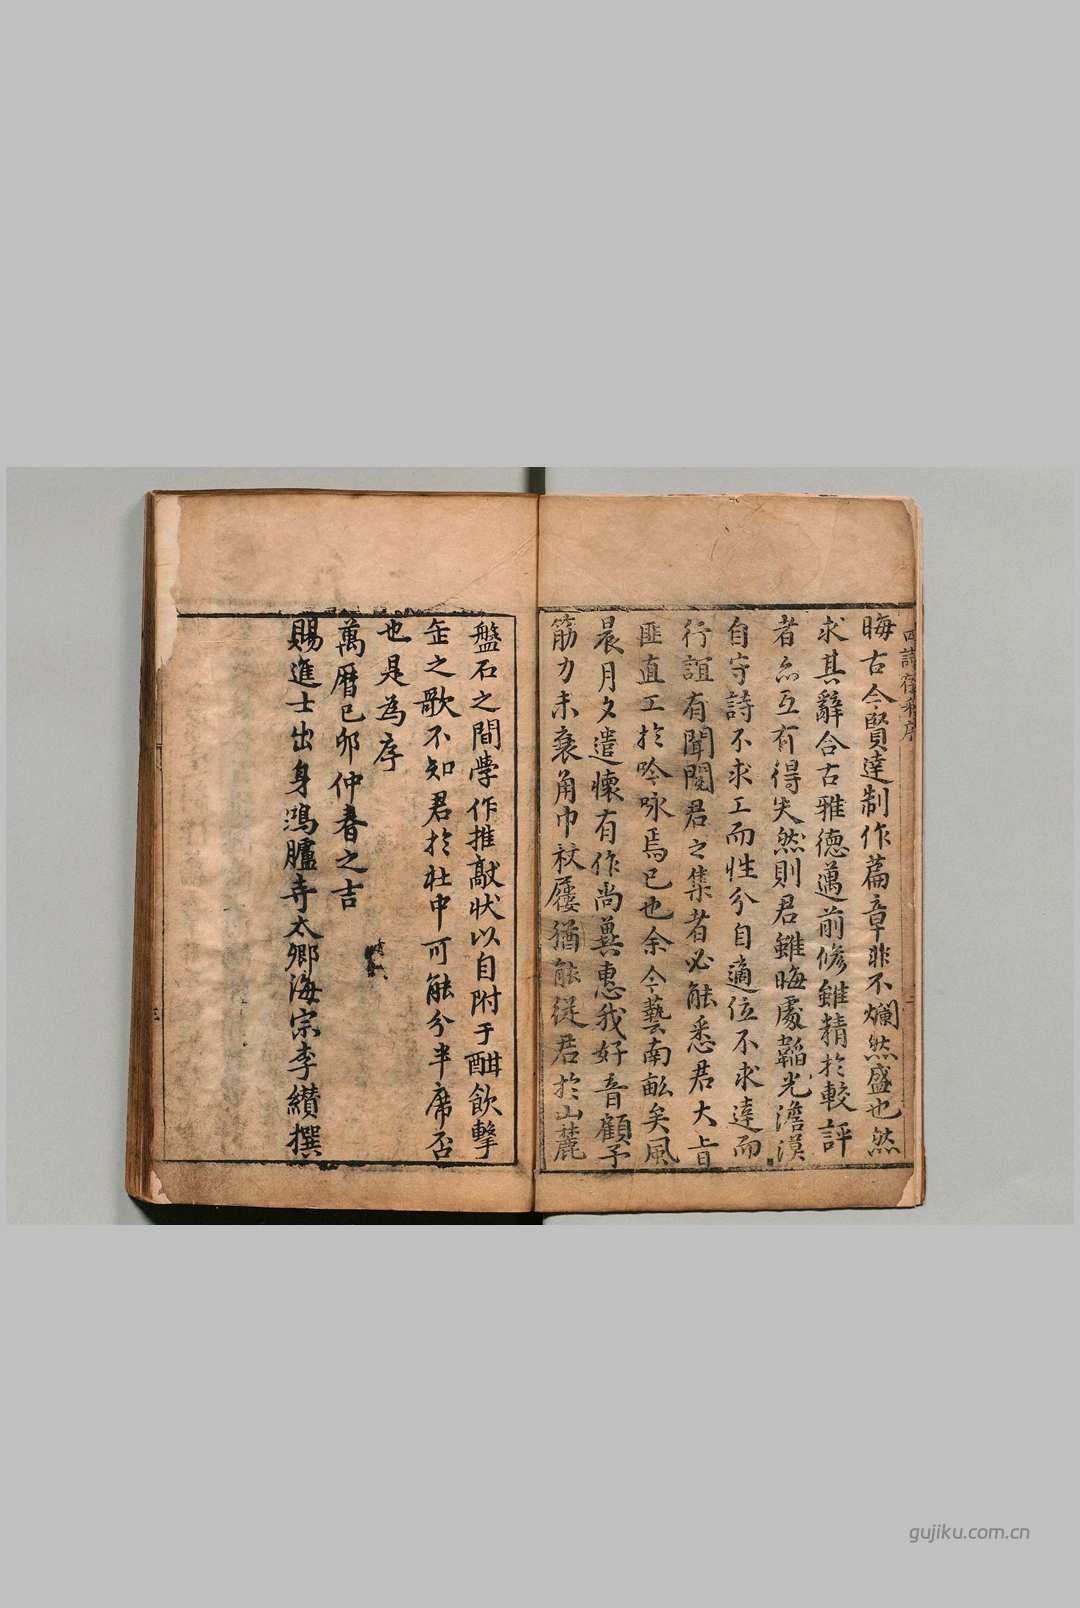 晦古今賢達制作篇章非不爛然盛也然
求其辭合古雅德邁前修雖精於較評
者亦互有得失然則君雖晦處韜光澹漠
自守詩不求工而性分自適位不求達而
行誼有聞閱君之集者必能悉君大旨
匪直工於吟咏焉已也余今藝南畝矣風
晨月夕遣懷有作尚冀惠我好音顧予
筋力未衰角巾杖屨猶能從君於山麓
盤石之間學作推敲狀以自附于酣飲擊
缶之歌不知君於社中可能分半席否
也是為序
萬曆己卯仲春之吉
賜進士出身鴻臚寺太卿海宗李纉撰
三
gujiku.com.cn